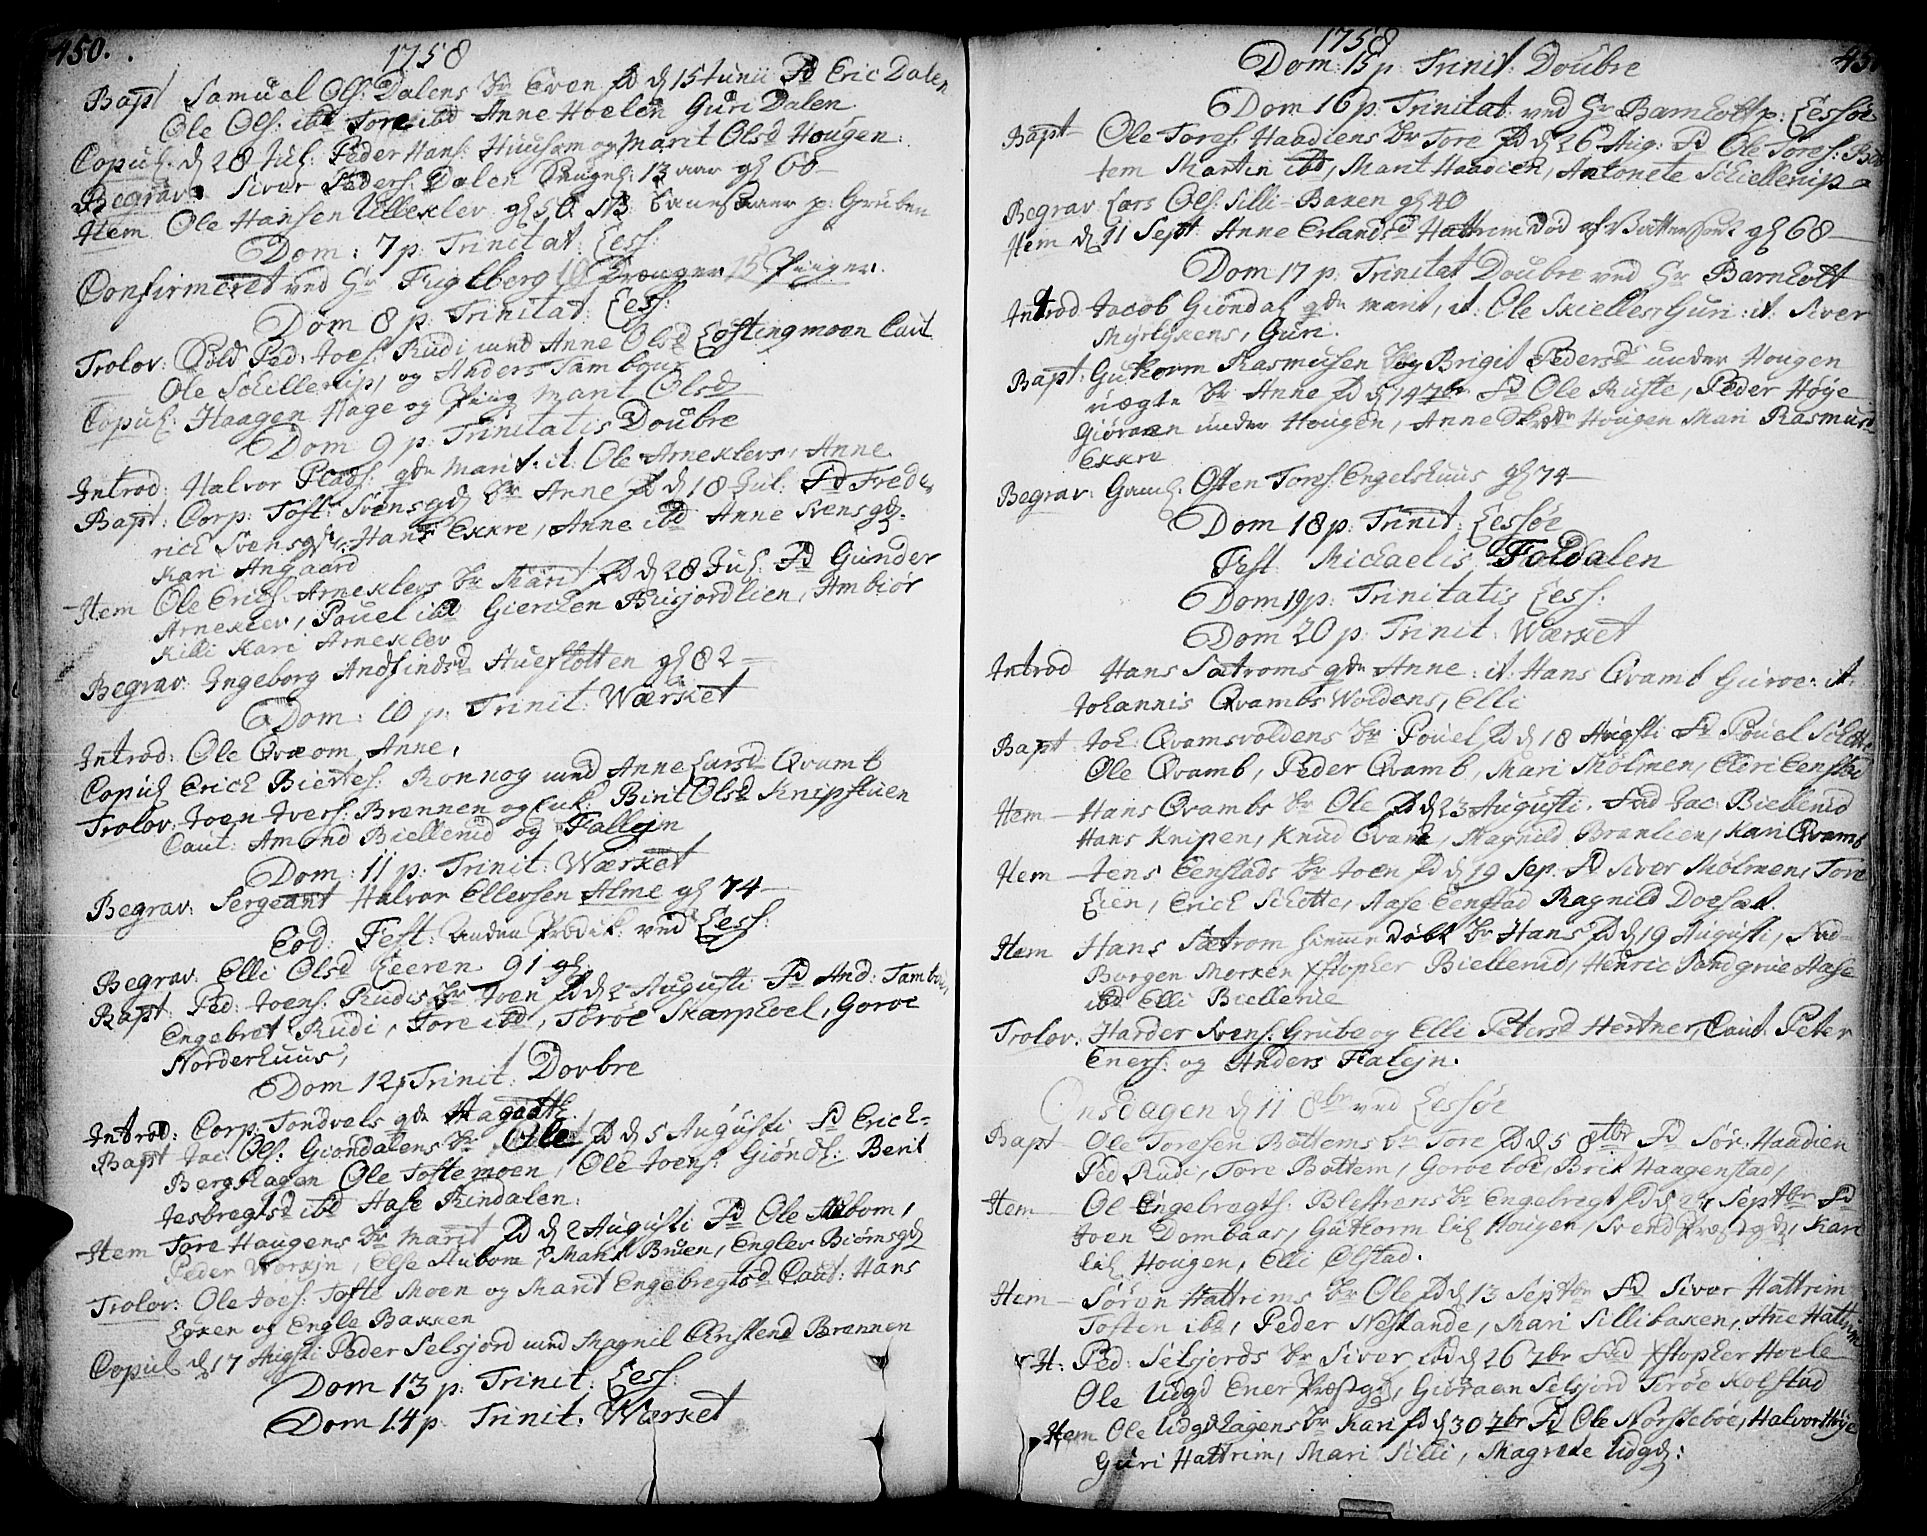 450.
1758
Bapt Samuel Ols: Dalens br Even fd d 15 Junii Fd Eric Dalen
Ole Ols: ibd Tore ibd Anne Hoelen Guri Dalen
Copul: d 28 Jul: Peder Hans: Huusom og Marit Olsd Hougen.
Begrav: Siver Peders: Dalen 13 aar gl 60
Item Ole Hansen Ulleklev gl 50 NB p: Gruben
Dom: 7 p: Trinitat: Less:
Confirmeret ved Hr Fuglberg 10 Drenger 15 Piiger.
Dom 8 p: Trinitat: Less:
Trolov: Sold Ped: Joes: Rudi med Anne Olsd Løftingmoen Caut
Ole Schillenip, og Anders Tambour
Copul: Haagen Hage og Piig Marit Olsd
Dom 9 p: Trinitatis Doubre
Introd: Halvor Plads: qde Marit. it: Ole Arneklevs, Anne
Bapt: Corp: Toft: Svensgd br Anne fd d 18 Jul: Fd Frede
rich Svensgd, Hans Ekkre, Anne ibd Anne Svensgd:
Kari Angaard
Item Ole Erichs: Arneklevs br Marit fd d 28 Jul: Fd Gunder
Arneklev, Pouel ibd Giertzen Biisjordlien, Ambiør
Killi Kari Arneklev
Begrav: Ingeborg Andfindsd Stuerflotten gl 82
Dom: 10 p: Trinit: Wærket
Introd: Ole Qvæom, Anne,
Copul Erich Biertes: Ronnog med Anne Larsd Qvamb
Trolov: Joen Ivers: Brennen og Enk: Birit Olsd Knipstuen
Caut: Amond Biellenid og Fallejn
Dom: 11 p: Trinit: Wærket
Begrav: Sergeant Halvor Ellersen Alme gl 74
Eod: Fest: anden Prædik: ved Less:
Begrav: Elli Olsd Leeren 91 gl
Bapt: Ped: Joens: Rudis br Joen fd d 2 Augusti Fd And: Tambour,
Engebret Rudi, Tore ibd, Torøe Skarphoel, Goroe
Norderhuus,
Dom 12 p Trinit: Dovbre
Introd: Corp: Tondvels qde Magnhil:
Bapt Jac: Ols: Giøndalens br Ole fd d 5 Augusti Fd Erich
Bergslagen Ole Toftemoen, Ole Joens: Giønd: Berit
Jesbregtsd ibd Aase Rindalen:
Item Tore Haugens br Marit fd d 2 Augusti Fd Ole Aalbom,
Peder Workjn, Else Aalbom, Marit Bruen, Englev Biørnsgd
Trolov: Ole Joes: Tofte Moen og Marit Engebregtsd Caut: Hans
Lykken og Engle Bakken
Copul d 17 Augusti Peder Selsjord med Magnil Christensd Brennen
Dom 13 p: Trinit: Less:
Dom 14 p: Trinit. Wærket
1758
451
Dom: 15 p: Trinit: Doubre
Dom 16 p: Trinitat: ved Hr Barnholt p: Lessøe
Bapst Ole Tores: Haadiens br Tore fd d 26 Aug: Fd Ole Tores: Bot
tem Martin ibd, Marit Haadien, Antonete Schiellenip
Begrav Lars Ols: Silli-Baken gl 40
Item d 11 Sept: Anne Erlandsd Hattrem gl 68
Dom 17 p: Trinitat Doubre ved Hr Barnholt
Introd Jacob Giøndal qde Marit, it: Ole Skielles, Guri: it: Siver
Myrlykens, Guri.
Bapt: Gutkorm Rasmusen og Brigit Pedersd under Hougen
uægte br Anne fd d 14 7br Fd Ole Ruste, Peder Høye
Giøraen under Hougen, Anne Hougen Mari Rasmusd
Ekkre
Begrav: Gaml: Often Tores: Engelshuus gl 74
Dom 18 p: Trinit: Lessøe
Fest Michaelis Foldalen
Dom 19 p: Trinitatis Less:
Dom 20 p: Trinit: Wærket
Introd Hans Sætroms qde Anne: it: Hans Qvamb Guroe: it:
Johannis Qvambs Woldens, Elli
Bapt: Joh: Qvamsvoldens br Pouel fd d 18 Augsti Fd Pouel Schotte
Ole Qvamb, Peder Qvamb, Mari Molmen, Eldri Eenstad
Item Hans Qvambs br Ole fd d 23 Augusti. Fad Jac: Biellenid
Hans Knipen, Knud Qvam, Magnild Brænlien, Kari Qvamb
Item Jens Eenstads br Joen fd d 19 Sep. Fd Siver Molmen, Tore
Lien, Erich Schotte, Aase Eenstad Ragnild Doesæt.
Item Hans Sætrom hiemme døbt br Hans fd d 19 Augusti, Fad
Borgen Merken Xstopher Biellenid, Henric Sandgrue Aase
ibd Elli Biellenie
Trolov: Harder Svens: Grube og Elli Petersd Hertner, Caut: Peter
Eners: og Anders Flalejn.
Onsdagen d 11 8br ved Lessøe
Bapt Ole Toresen Bottems br Tore fd d 5 8tbr Fd Sør: Haadien
Ped Rudi, Tore Bottem, Goroe Brit Haagenstad,
Item Ol Engebregts: Blestrens br Engebregt fd d 24 Septbr Fd
Joen Dombaas, Gutkorm lil Hougen, Svend Præstgd, Kari
lil Hougen, Elli Olstad.
Item Søren Hattrims br Ole fd d 13 Septbr Fd Siver Hattrim
Tosten ibd, Peder Nestande, Mari Sillibaken, Ane Hattrim
It: Ped: Selsjords br Siver fd d 26 7br Fad Xstopher Hoele
Ole Udgd Ener Præstgd, Giøraen Selsjord Torøe Kolstad
Item Ole Udgd Hagens br Kari fd d 30 7br Fd Ole Norsteboe, Halvor Høye
Guri Hattrim, Mari Silli, Magrete Udgd: